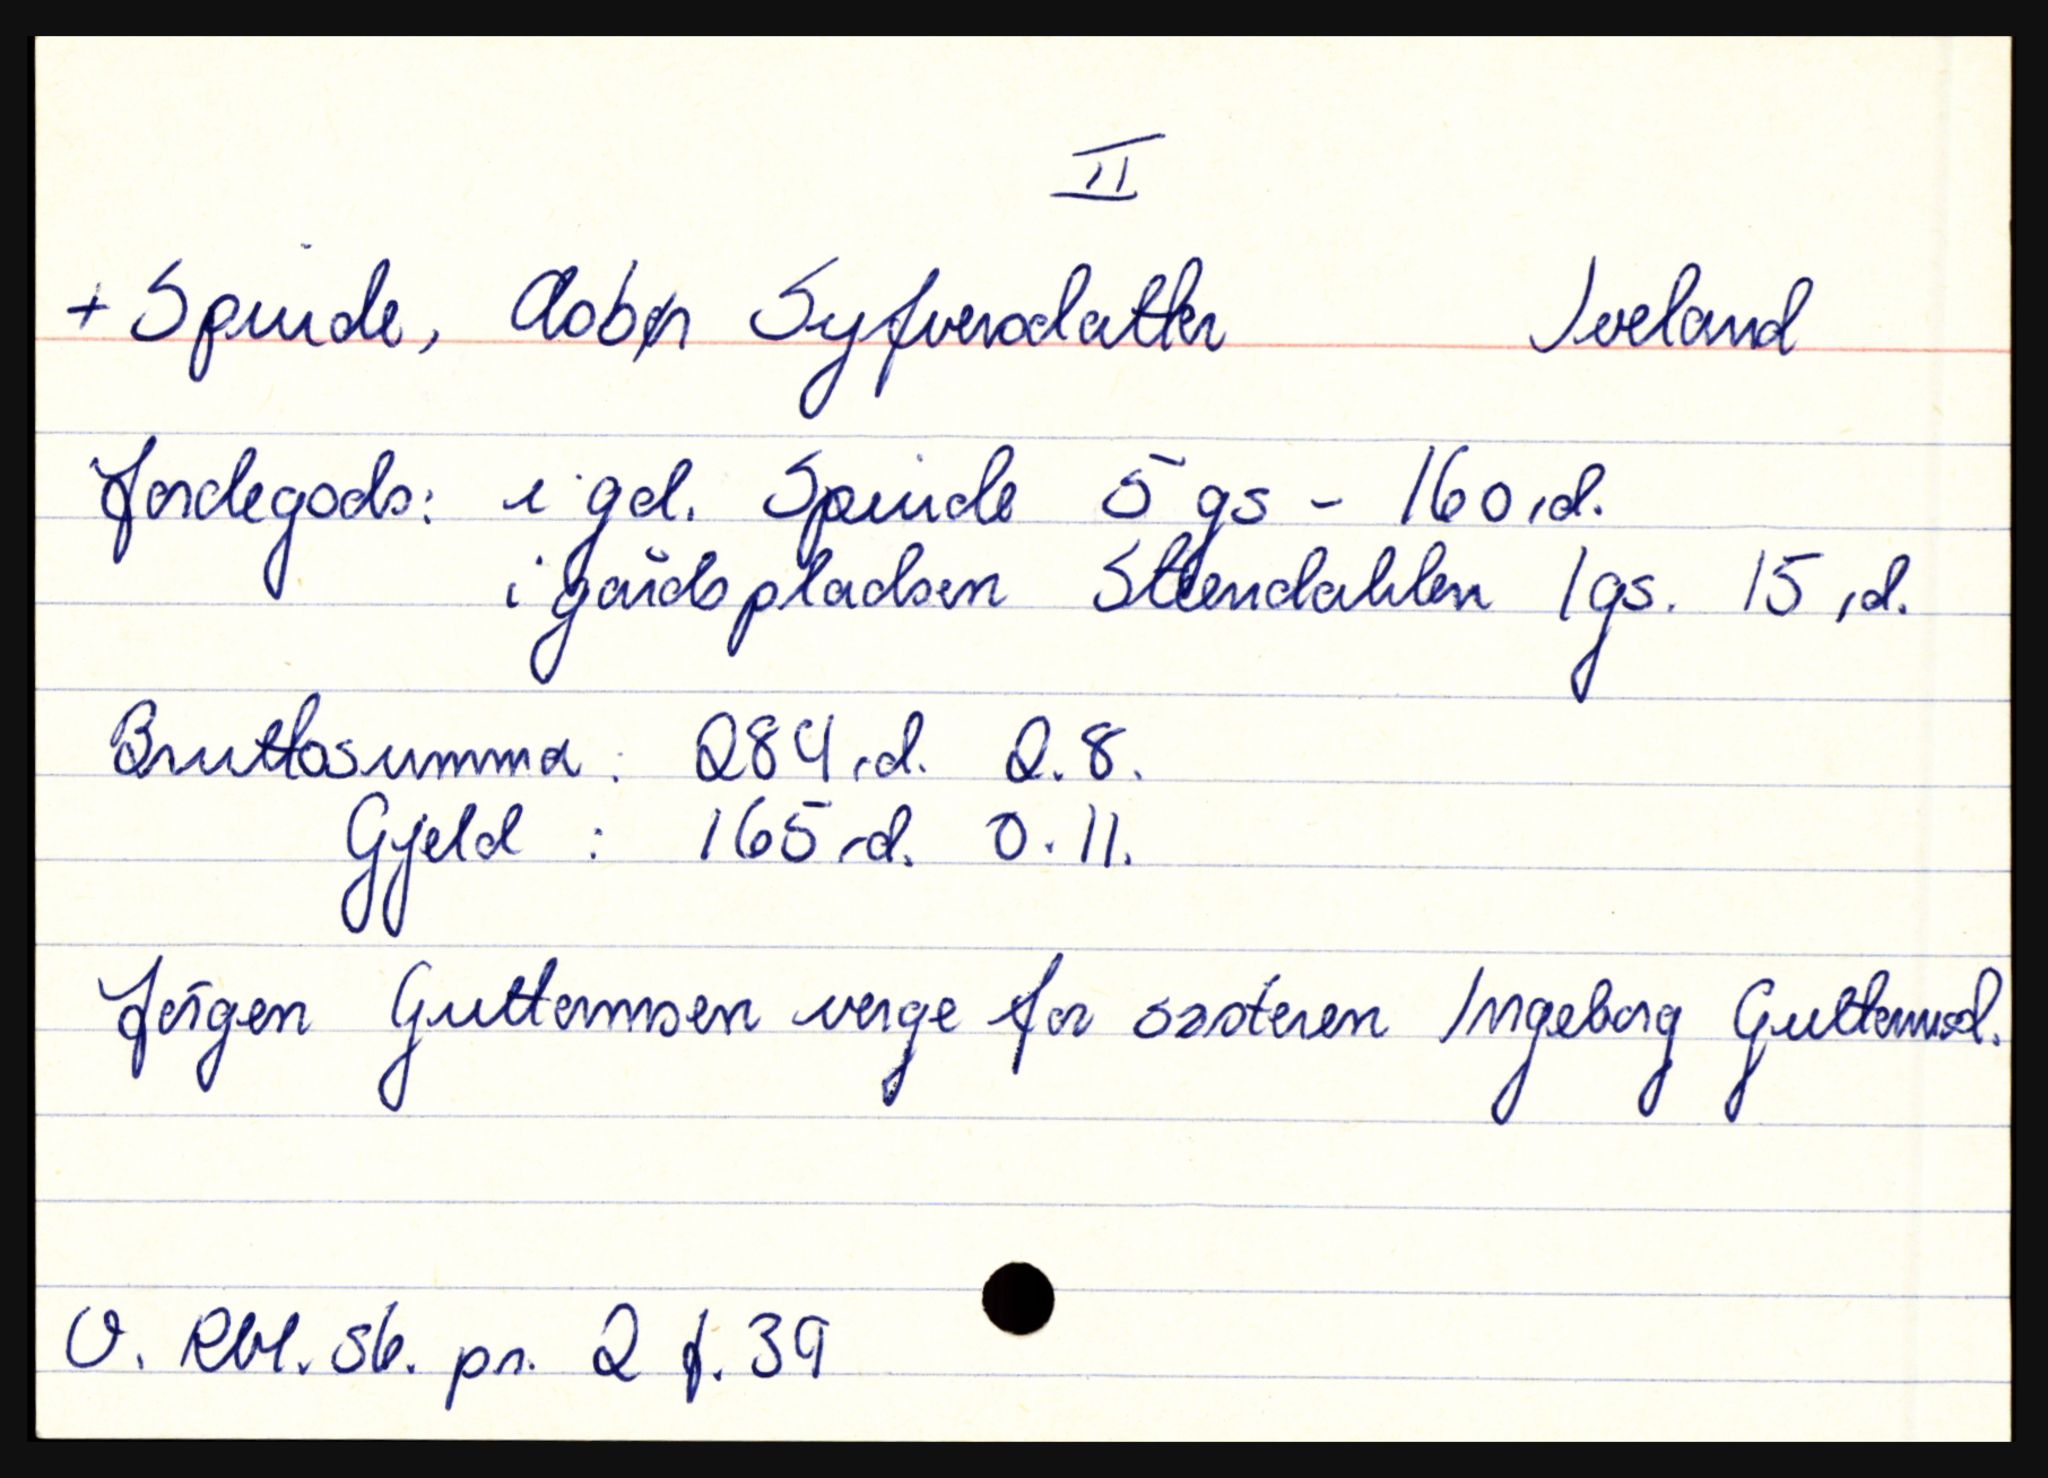 II
+ Spinde, Aobør Syfversdatter Iveland
Jordegods: i gd. Spinde 5 gs - 160 rd.
i gårdspladsen Steendahlen 1 gs. 15 rd.
Bruttosumma: 284 rd. 2.8.
Gjeld : 165 rd. 0.11.
Jörgen Guttormsen verge for søsteren Ingeborg Guttormsd.
O. Rbl. sk. pr. 2 f. 39